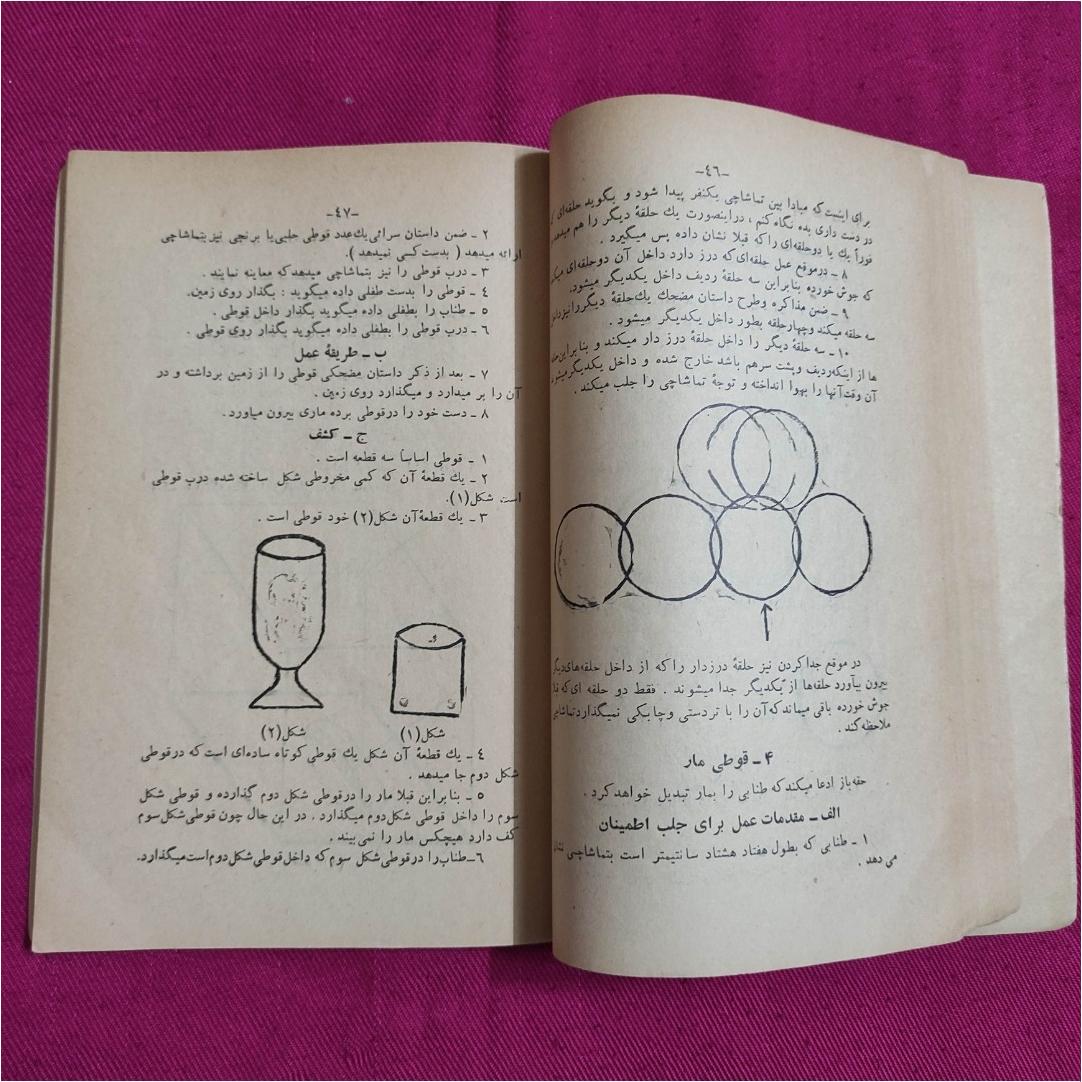 -٤٦-
برای اینست که مبادا بین تماشاچی یکنفر پیدا شود و بگوید حلقه‌ای
در دست داری بده نگاه کنم ، دراینصورت یك حلقهٔ دیگر را هم میدهد
فوراً یك یا دو حلقه‌ای را که قبلا نشان داده پس میگیرد .
۸ - درموقع عمل حلقه‌ای که درز دارد داخل آن دوحلقه‌ای
که جوش خورده بنابراین سه حلقهٔ ردیف داخل یکدیگر میشود.
۹ - ضمن مذاکره وطرح داستان مضحك یك‌حلقهٔ دیگررا نیز
سه حلقه میکند وچهارحلقه بطور داخل یکدیگر میشود .
۱۰ - سه حلقهٔ دیگر را داخل حلقهٔ درز دار میکند و بنابراین
ها از اینکه‌ردیف وپشت سرهم باشد خارج شده و داخل یکدیگر میشود
آن وقت آنها را بهوا انداخته و توجهٔ تماشاچی را جلب میکند .
در موقع جداکردن نیز حلقهٔ درزدار راکه از داخل حلقه‌های‌دیگر
بیرون بیآورد حلقه‌ها از یکدیگر جدا میشوند . فقط دو حلقه ای‌که
جوش خورده باقی میماندکه‌آن را با تردستی وچابکی نمیگذاردتماشاچی
ملاحظه‌کند .
۴ - قوطی مار
حقه‌باز ادعا میکندکه طنابی را بمار تبدیل خواهدکرد .
الف - مقدمات عمل برای جلب اطمینان
۱ - طنابی که بطول هفتاد هشتاد سانتیمتر است بتماشاچی نشان
می دهد .
-٤٧-
۲ - ضمن داستان سرائی‌یك‌عدد قوطی حلبی‌یا برنجی نیز بتماشاچی
ارائه میدهد ( بدست‌کسی نمیدهد ).
۳ - درب قوطی را نیز بتماشاچی میدهدکه معاینه نمایند .
٤ - قوطی را بدست طفلی داده میگوید : بگذار روی زمین.
۵ - طناب را بطفلی داده میگوید بگذار داخل قوطی .
٦ - درب قوطی را بطفلی داده میگوید بگذار روی قوطی .
ب - طریقهٔ عمل
۷ - بعد از ذکر داستان مضحکی قوطی را از زمین برداشته و در
آن را بر میدارد و میگذارد روی زمین .
۸ - دست خود را درقوطی برده ماری بیرون میاورد .
ج - کشف
۱ - قوطی اساساً سه قطعه است .
۲ - یك قطعهٔ آن که کمی مخروطی شکل ساخته شده درب قوطی
است شکل(۱).
۳ - یك قطعهٔ آن شکل(۲) خود قوطی است .
شکل(۱)
شکل(۲)
٤ - یك قطعهٔ آن شکل یك قوطی کوتاه ساده‌ای است که درقوطی
شکل دوم جا میدهد .
۵ - بنابراین قبلا مار را درقوطی شکل دوم گذارده و قوطی شکل
سوم را داخل قوطی شکل‌دوم میگذارد . در این حال چون قوطی‌شکل‌سوم
کف دارد هیچکس مار را نمی‌بیند .
٦-طناب‌را درقوطی شکل سوم که داخل‌قوطی‌شکل‌دوم‌است‌میگذارد.